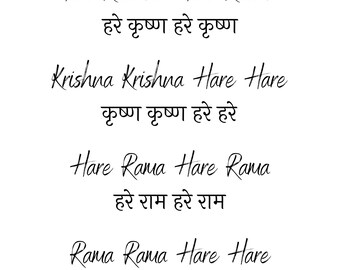 हरे कृष्ण हरे कृष्ण
Krishna Krishna Hare Hare
कृष्ण कृष्ण हरे हरे
Hare Rama Hare Rama
हरे राम हरे राम
Rama Rama Hare Hare